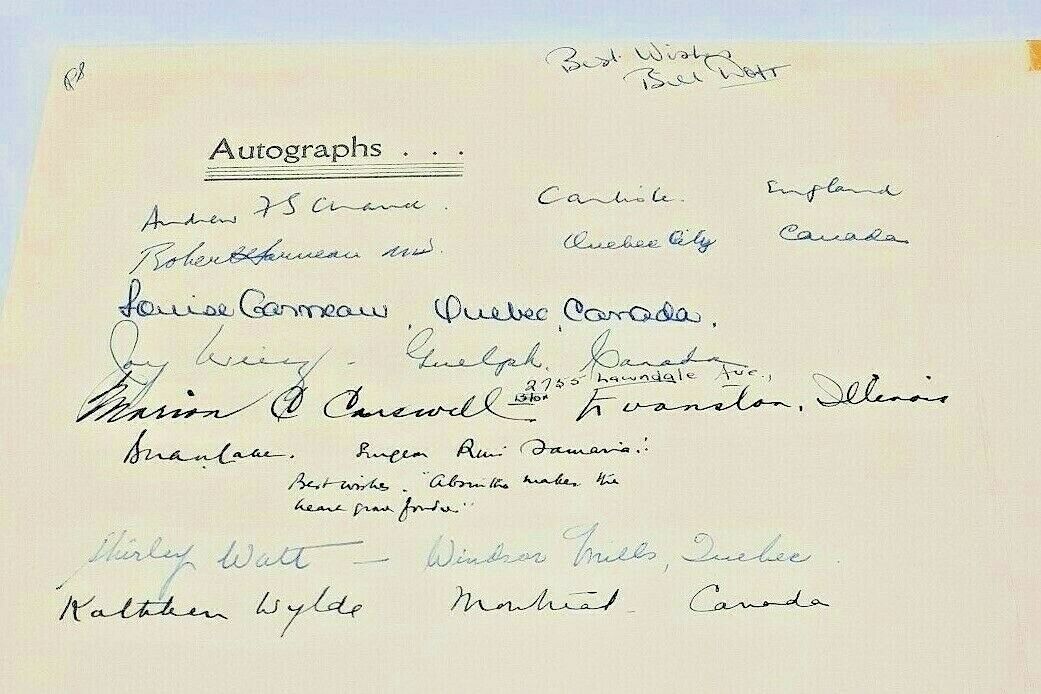 Best Wishes
Bill Watt
Autographs . . .
Andrew Carlisle. England
Robert Garneau Quebec City Canada
Louise Garneau, Quebec, Canada.
Joy - Guelph, Canada
2755 Lawndale Ave.,
Marion C Carswell Evanston, Illinois
Best wishes. "Absinthe makes the
heart grow fonder"
Shirley Watt — Windsor Mills, Quebec.
Kathleen Wylde Montreal - Canada